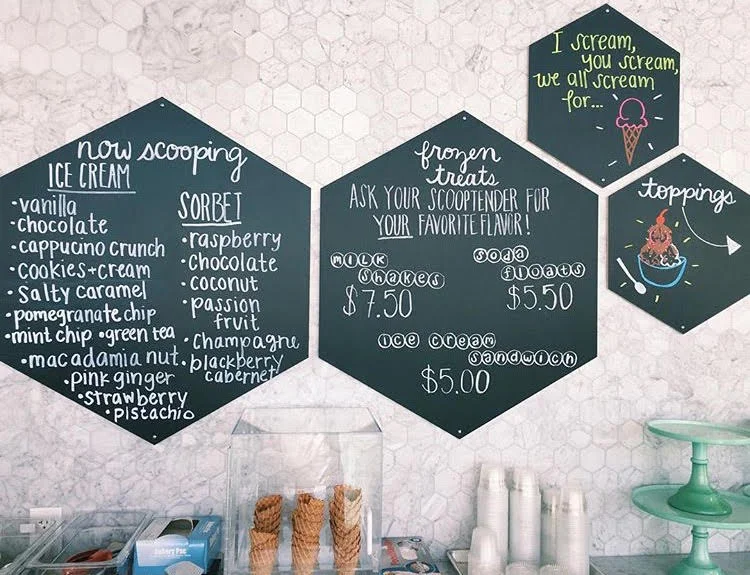 now scooping
ICE CREAM
•vanilla
•chocolate
•cappucino crunch
•cookies+cream
•salty caramel
•pomegranate chip
•mint chip •green tea
•macadamia nut
•pink ginger
•strawberry
•pistachio
SORBET
•raspberry
•chocolate
•coconut
•passion
fruit
•champagne
•blackberry
cabernet
frozen
treats
ASK YOUR SCOOPTENDER FOR
YOUR FAVORITE FLAVOR!
MILK
Shakes
$7.50
Soda
floats
$5.50
ice cream
sandwich
$5.00
I scream,
you scream,
we all scream
for...
toppings
Bakery Pac